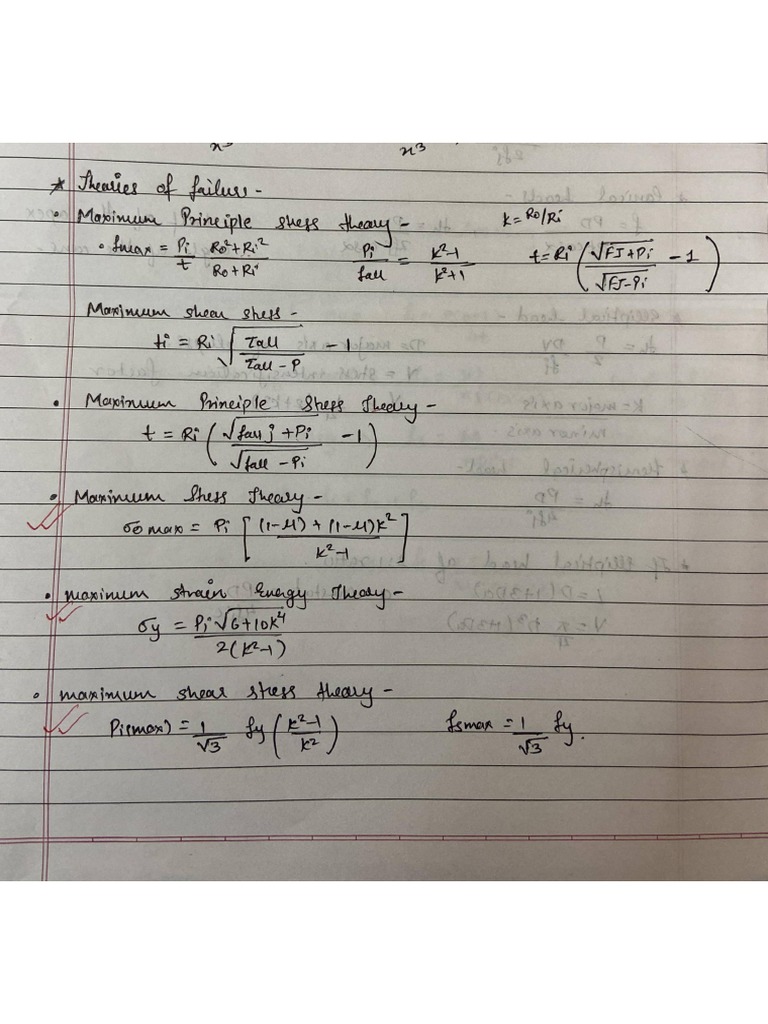 x³ x³
* Theories of failure -
• Maximum Principle stress theory - k = Ro/Ri
• fmax = Pi/t (Ro²+Ri²)/(Ro+Ri) Pi/fall = (k²-1)/(k²+1) t = Ri (√(FJ+Pi)/√(FJ-Pi) - 1)
Maximum shear stress -
ti = Ri √(τall/(τall - P)) - 1
• Maximum Principle Stress Theory -
t = Ri (√(fall j + Pi)/√(fall - Pi) - 1)
• Maximum Stress Theory -
σθ max = Pi [((1-μ) + (1-μ)k²)/(k²-1)]
• maximum strain Energy Theory -
σy = Pi √(6+10k⁴)/2(k²-1)
• maximum shear stress theory -
Pi(max) = 1/√3 fy ((k²-1)/k²) fsmax = 1/√3 fy.